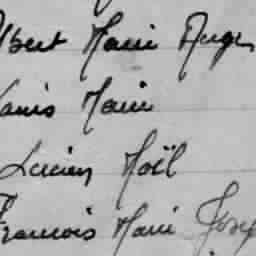 Albert Marie Ange
Louis Marie
Lucien Noël
Francois Marie Josep